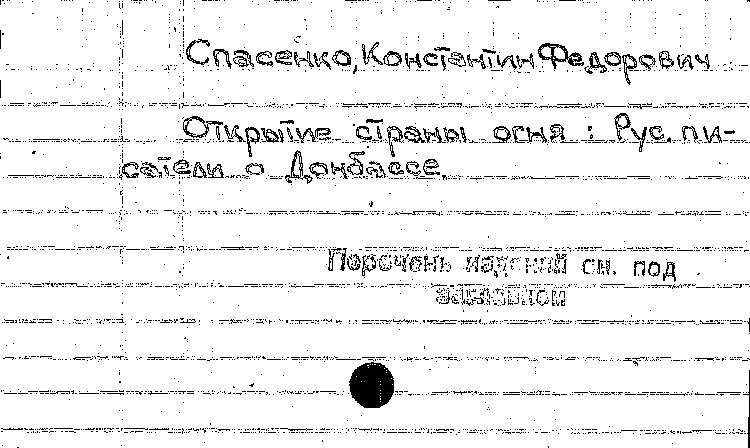 Спасенко, Константин Федорович
Открытие страны огня : Рус. пи-
сатели о Донбассе.
Перечень изданий см. под
заглавием